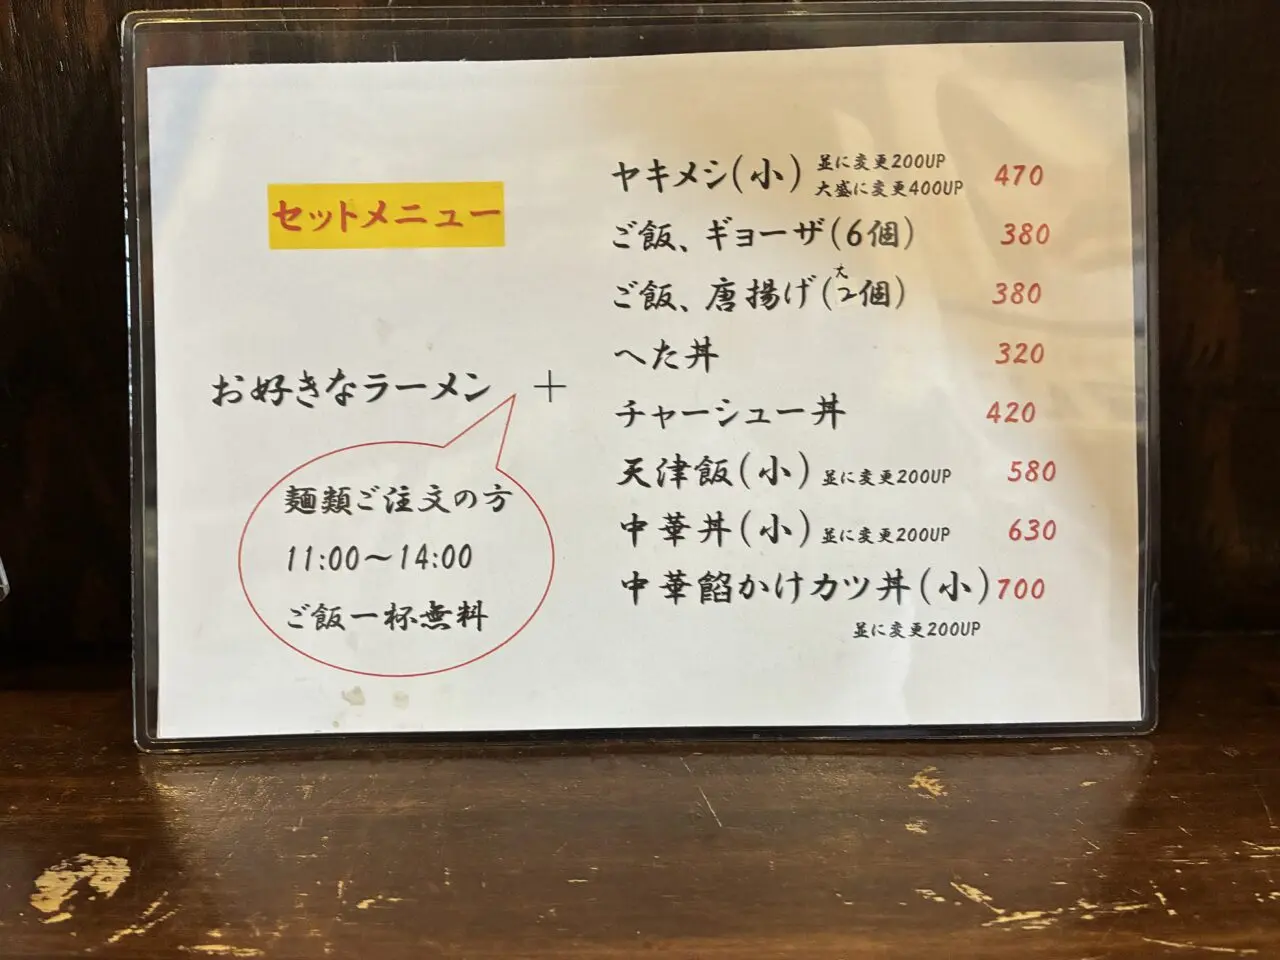 セットメニュー
お好きなラーメン +
麺類ご注文の方
11:00～14:00
ご飯一杯無料
ヤキメシ(小) 並に変更200UP 大盛に変更400UP 470
ご飯、ギョーザ(6個) 380
ご飯、唐揚げ(大2個) 380
へた丼 320
チャーシュー丼 420
天津飯(小) 並に変更200UP 580
中華丼(小) 並に変更200UP 630
中華餡かけカツ丼(小) 700
並に変更200UP